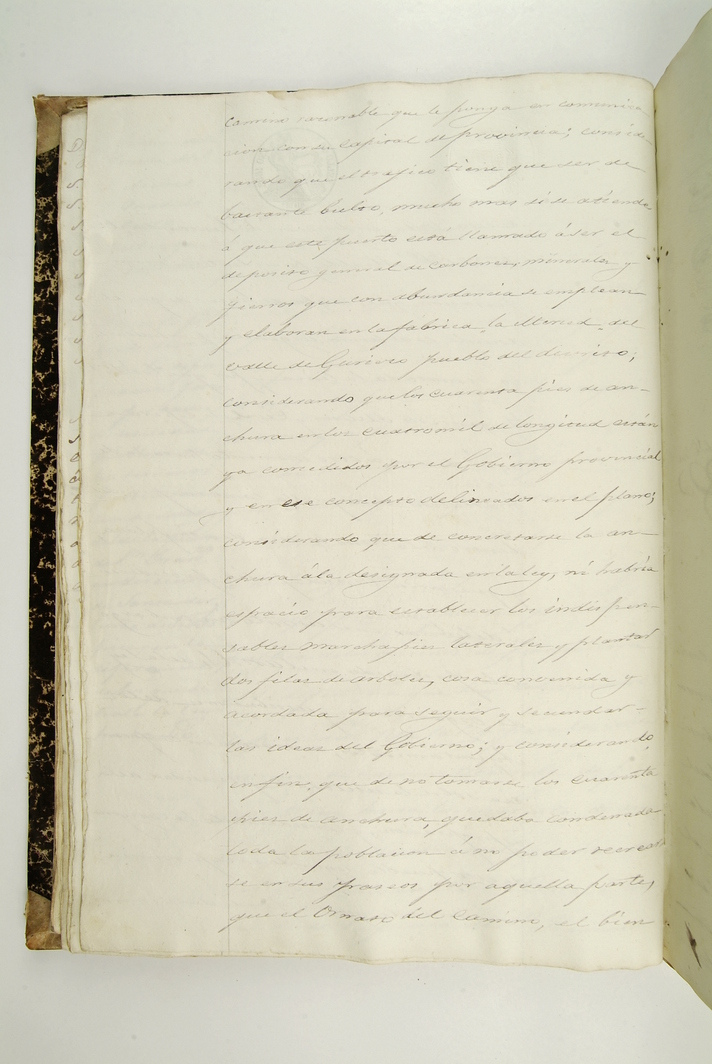 camino razonable que le ponga en comunica
cion con su capital de provincia; conside
rando que el trafico tiene que ser de
bastante bulto, mucho mas si se atiende
á que este puerto está llamado á ser el
deposito general de carbones, minerales y
fierros que con abundancia se emplean
y elaboran en la fábrica la Merced, del
valle de Guriezo pueblo del distrito;
considerando que los cuarenta pies de an-
chura en los cuatro mil de longitud están
ya concedidos por el Gobierno provincial
y en ese concepto delineados en el plano;
considerando que de concretarse la an-
chura á la designada en la ley, ni habria
espacio para establecer los indispen-
sables marchapies laterales y plantar
dos filas de arboles, cosa convenida y
acordada para seguir y secundar
las ideas del Gobierno; y considerando
en fin, que de no tomarse los cuarenta
pies de anchura, quedaba condenada
toda la poblacion á no poder recrear
se en sus paseos por aquella parte,
que el Ornato del Camino, el bien